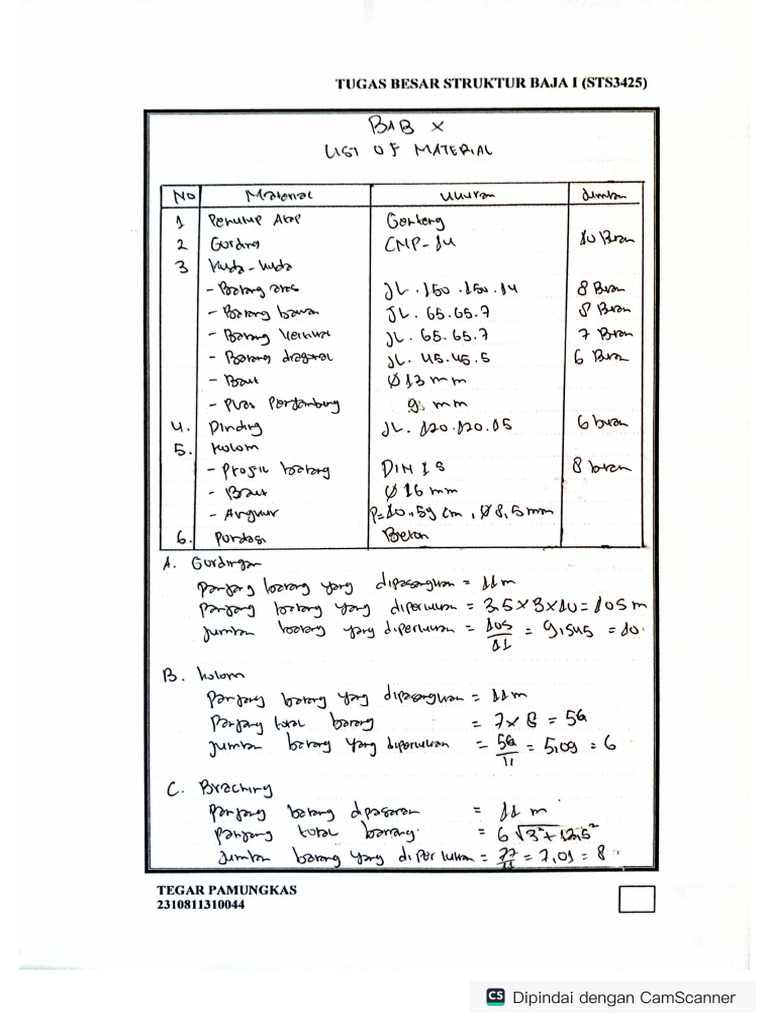 TUGAS BESAR STRUKTUR BAJA I (STS3425)
BAB X
LIST OF MATERIAL
NO Material Ukuran Jumlah
1 Penutup Atap Genteng
2 Gording CNP-14 10 Buah
3 Kuda-kuda
- Batang atas JL.150.150.14 8 Buah
- Batang bawah JL.65.65.7 8 Buah
- Batang Vertikal JL.65.65.7 7 Buah
- Batang diagonal JL.45.45.5 6 Buah
- Baut Ø13 mm
- Plat Penyambung 9 mm
4. Dinding JL.120.120.15 6 buah
5. Kolom
- Profil batang DIN 18 8 buah
- Baut Ø 16 mm
- Angkur P=10.59 cm, Ø 8,5 mm
6. Pondasi Beton
A. Gordingan
Panjang batang yang dipasangkan = 11 m
Panjang batang yang diperlukan = 3.5 x 3 x 10 = 105 m
Jumlah batang yang diperlukan = 105/11 = 9,545 = 10.
B. Kolom
Panjang batang yang dipasangkan = 11 m
Panjang total batang = 7 x 8 = 56
Jumlah batang yang diperlukan = 56/11 = 5,09 = 6
C. Braching
Panjang batang dipasaran = 11 m
Panjang total batang = 6√3²+12.5²
Jumlah batang yang diperlukan = 77/11 = 7,01 = 8
TEGAR PAMUNGKAS
2310811310044
CS Dipindai dengan CamScanner